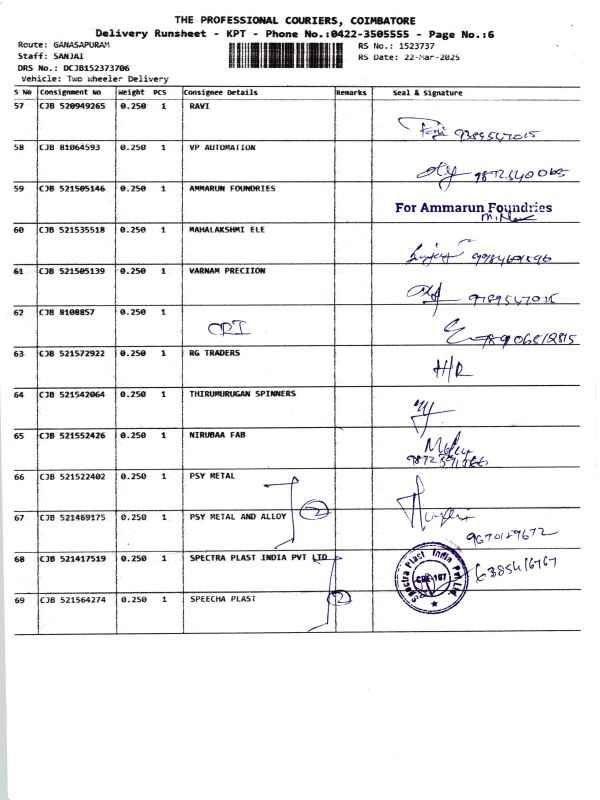 THE PROFESSIONAL COURIERS, COIMBATORE
Delivery Runsheet - KPT - Phone No.:0422-3505555 - Page No.:6
Route: GANASAPURAM RS No.: 1523737
Staff: SANJAI RS Date: 22-Mar-2025
DRS No.: DCJB152373706
Vehicle: Two Wheeler Delivery
S No Consignment No Weight PCS Consignee Details Remarks Seal & Signature
57 CJB 520949265 0.250 1 RAVI
9389547015
58 CJB 81064593 0.250 1 VP AUTOMATION
59 CJB 521505146 0.250 1 AMMARUN FOUNDRIES
For Ammarun Foundries
60 CJB 521535518 0.250 1 MAHALAKSHMI ELE
61 CJB 521505139 0.250 1 VARNAM PRECIION
9789547015
62 CJB 8108857 0.250 1
CRI
63 CJB 521572922 0.250 1 RG TRADERS
H/R
64 CJB 521542064 0.250 1 THIRUMURUGAN SPINNERS
65 CJB 521552426 0.250 1 NIRUBAA FAB
66 CJB 521522402 0.250 1 PSY METAL
2
67 CJB 521469175 0.250 1 PSY METAL AND ALLOY
9670127672
68 CJB 521417519 0.250 1 SPECTRA PLAST INDIA PVT LTD
Spectra Plast India Pvt. Ltd.
CBE-107
6385416767
69 CJB 521564274 0.250 1 SPEECHA PLAST
2